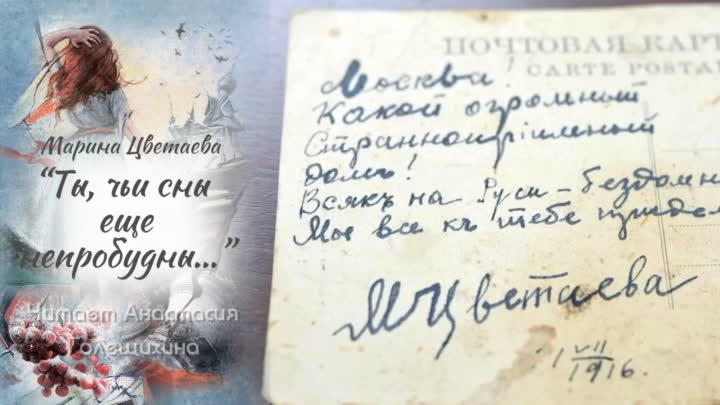 Марина Цветаева
“Ты, чьи сны
еще
непробудны...”
Читает Анастасия
Голещихина
ПОЧТОВАЯ КАР
CARTE POSTA
Москва!
Какой огромный
Страннопріимный
домъ!
Всякъ на Руси – бездомн
Мы все къ тебе придем
МЦветаева
1 VII
1916.